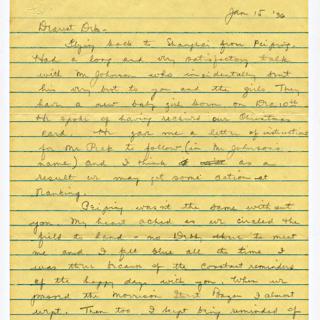 Jan 15 '36
Dearest Drb-
Flying back to Shanghai from Peiping.
Had a long and very satisfactory talk
with Mr. Johnson who incidentally sent
his very best to you and the girls. They
have a new baby girl born on Dec 10th
He spoke of having received our Christmas
card. He gave me a letter of instructions
for Mr Peck to follow (in Mr Johnson's
name) and I think as a
result we may get some action at
Nanking.
Peiping wasn't the same without
you. My heart ached as we circled the
field to land & no there to meet
me and I felt blue all the time I
was there because of the constant reminders
of the happy days with you. When we
passed the Morrison Street Bazar I almost
wept. Then too I kept being reminded of